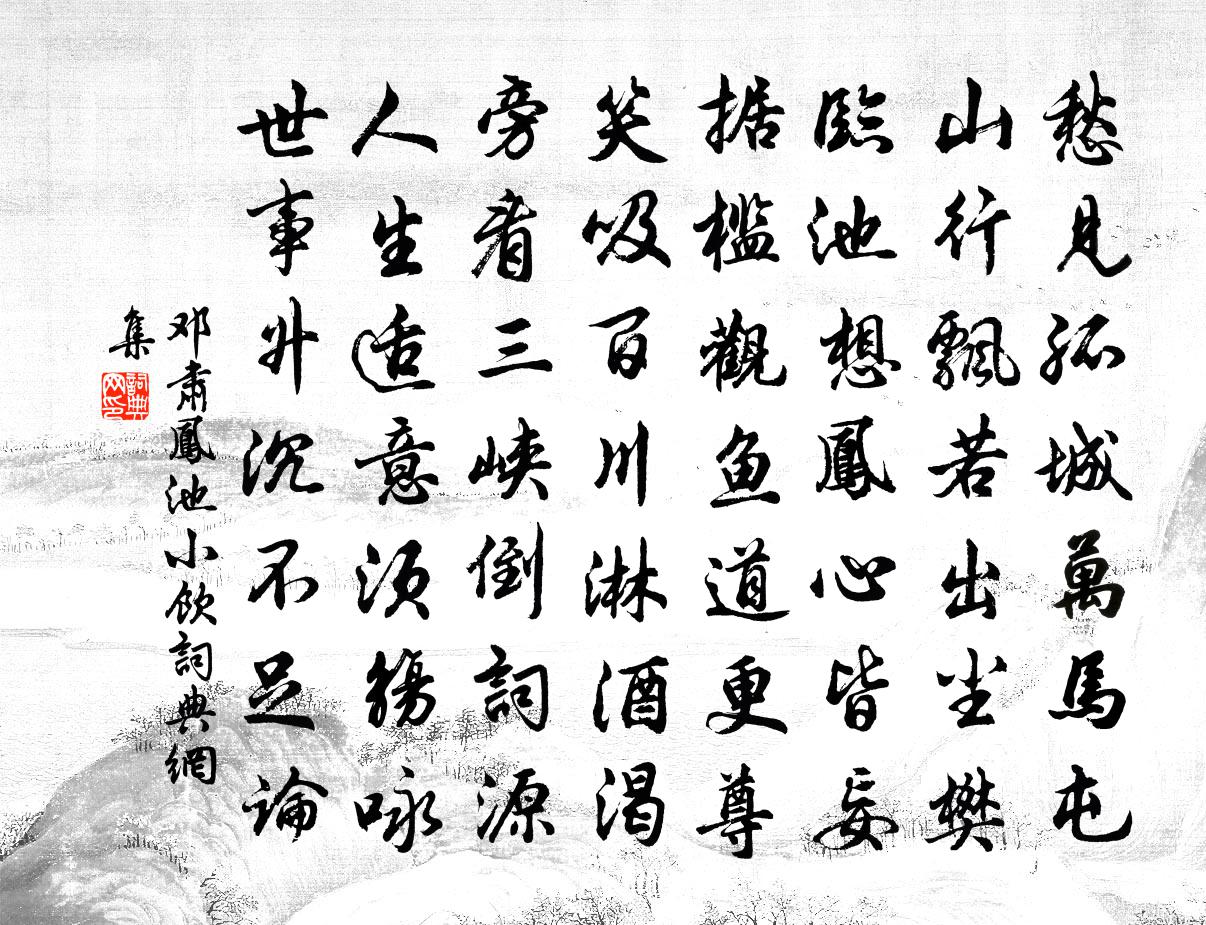 愁見孤城萬馬屯
山行飄若出尘樊
臨池想鳳心皆妄
据槛觀鱼道更尊
笑吸百川淋酒渴
旁看三峡倒詞源
人生适意须觞咏
世事升沉不足論
邓肃鳳池小飲詞典網
集
詞典网印